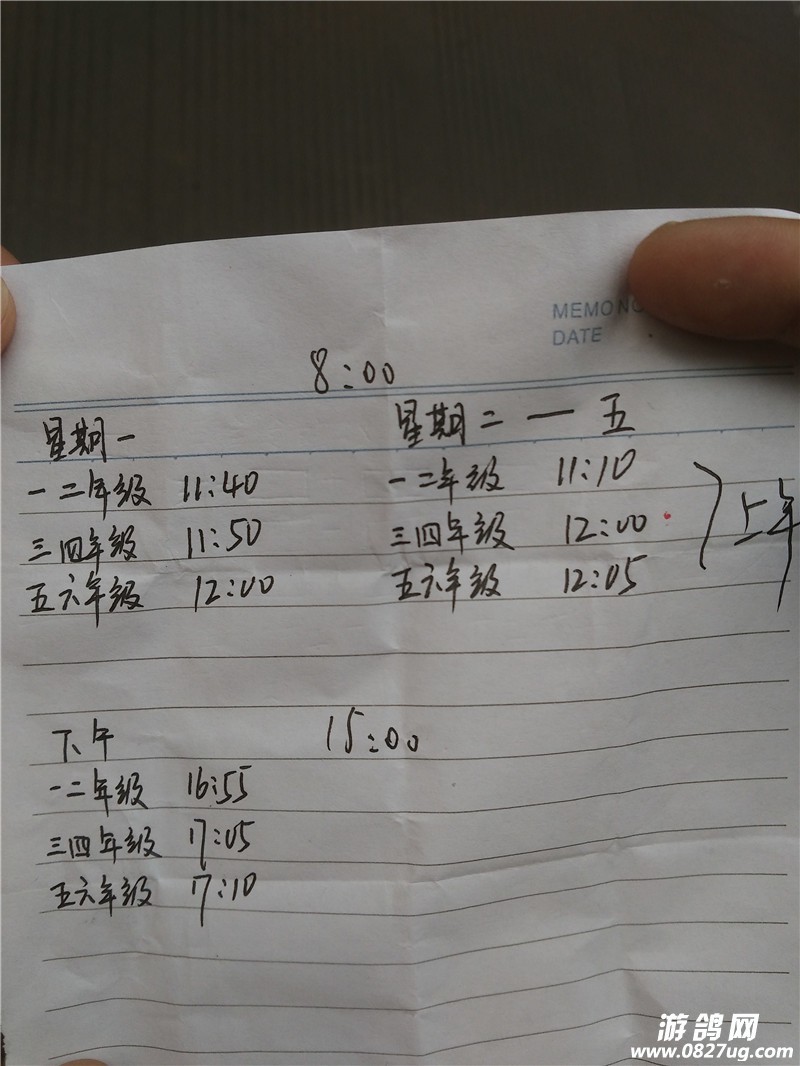 MEMO NO
DATE
8:00
星期一
一二年级 11:40
三四年级 11:50
五六年级 12:00
星期二 — 五
一二年级 11:10
三四年级 12:00
五六年级 12:05
上午
下午 15:00
一二年级 16:55
三四年级 17:05
五六年级 17:10
游鸽网
www.0827ug.com